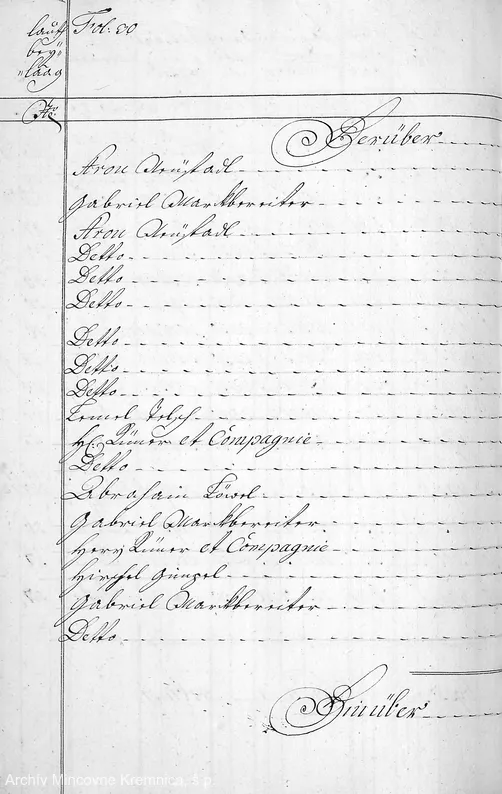 lauth Fol: 30
bey¨
¨laag
No:
Herüber
Aron Neüstadl
Gabriel Markbereiter
Aron Neüstadl
Detto
Detto
Detto
Detto
Detto
Detto
Lemel
H: et Compagnie
Detto
Abraham Löwel
Gabriel Markbereiter
Herr et Compagnie
Hirschel Gumpel
Gabriel Markbereiter
Detto
Hinüber
Archív Mincovne Kremnica, š.p.